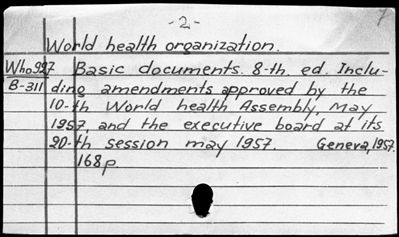 -2-
7
World health organization.
Who927 Basic documents. 8-th. ed. Inclu-
B-311 ding amendments approved by the
10-th World health Assembly, May
1957, and the executive board at its
20-th session may 1957. Geneva, 1957.
168p.